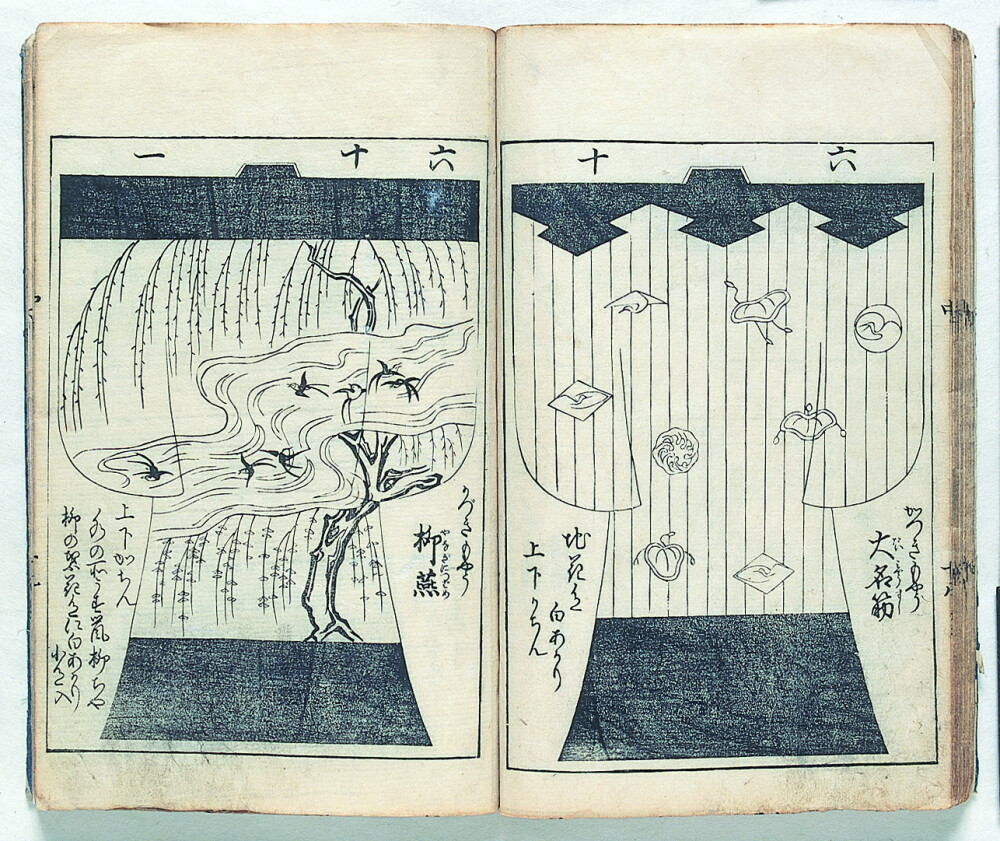 六十
かつきもやう
大名筋
地花色
白あかり
上下かちん
六十一
かつきもやう
柳燕
上下かちん
水の所うす鼠柳ちや
柳の葉花色に白あかり